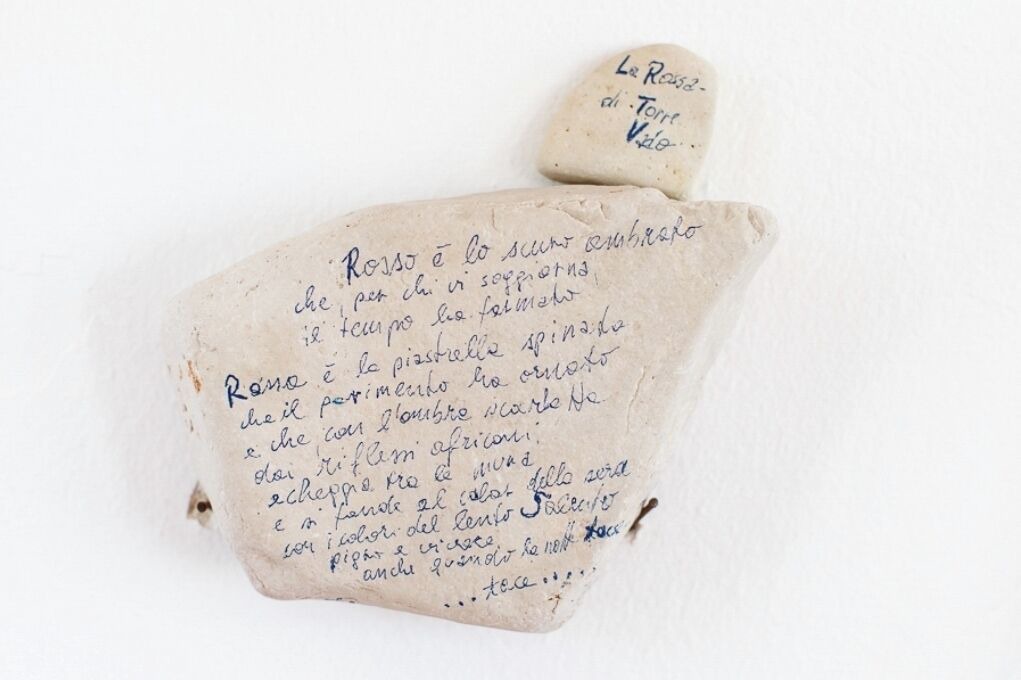 La Rossa
di Torre
Vado
Rosso è lo scuro ambrato
che, per chi vi soggiorna,
il tempo ha fermato
Rossa è la piastrella spinata
che il pavimento ha ornato
e che con l'ombra scarlatta
dai riflessi africani
echeggia tra le mura
e si fonde al calar della sera
con i colori del lento Salento
pigro e vivace
anche quando la notte tace
...tace.....